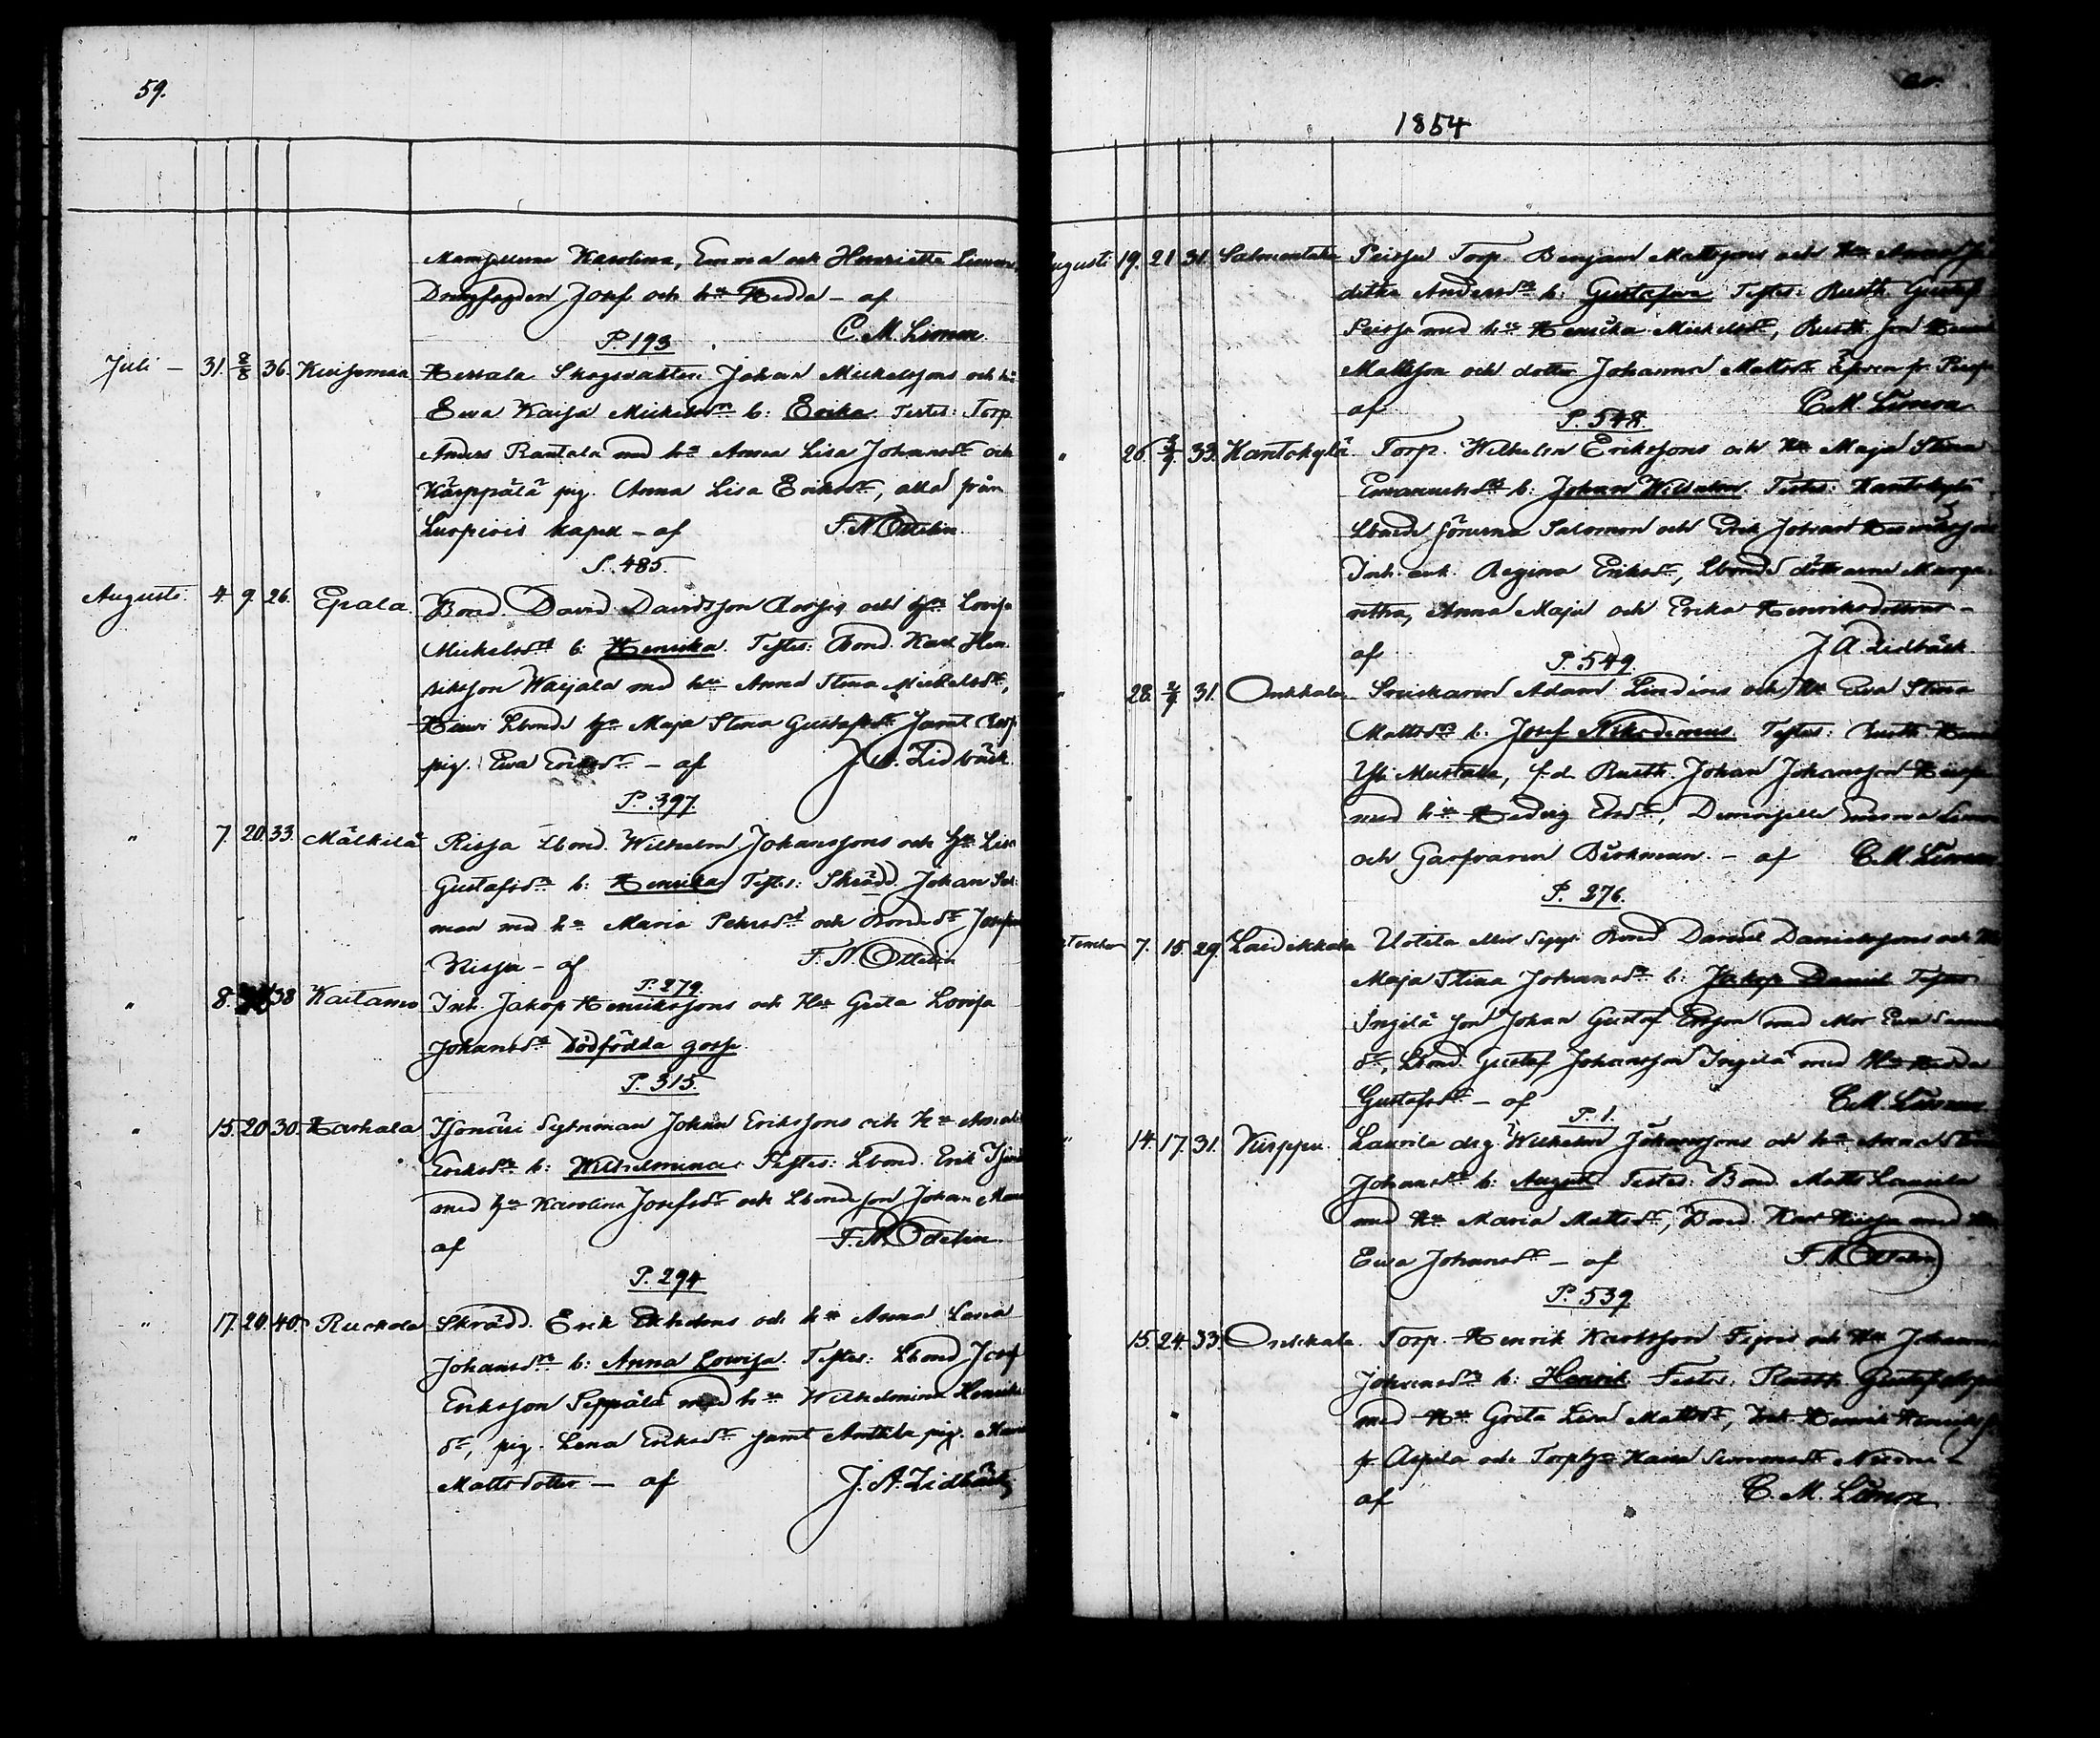 59.
Mamsellerna Karolina, Emma och Henrietta Limon,
Drengfogden Josef och h:u Hedda – af
C. M. Limon
P. 193
Juli – 31. 8/8 36. Kuisemaa Hersala Skogsvakten Johan Mickelssons och h:u
Ewa Kaisa Mickelsdr b: Erika Testes: Torp.
Anders Rantala med h:u Anna Lisa Johansdr och
Kärppälä pig. Anna Lisa Eriksdr, alla från
Luopiois kapell – af F. N. Ottelin
S. 485.
Augusti. 4. 9. 26. Epala. Bond. David Davidsson och h:u Lovisa
Mickelsdr b: Henrika. Testes: Bond. Karl Hen-
riksson Waijala med h:u Anna Stina Mickelsdr,
Lbonds h:u Maja Stina Gustafsdr samt
pig. Ewa Eriksdr – af J. A. Lidbäck
P. 397.
" 7. 20. 33. Mälkilä Rissa Lbond. Wilhelm Johanssons och h:u Lisa
Gustafsdr b: Henrika Testes: Skrädd. Johan
man med h:u Maria Petersdr och Bondedr
Rissa – af F. N. Ottelin
P. 279.
" 8. 38 Kaitamo Inh. Jakop Henrikssons och H:u Greta Lovisa
Johansdr Dödfödda gosse.
P. 315.
" 15. 20. 30. Harhala Isonäri Sytnman Johan Erikssons och H:u
Eriksdr b: Wilhelmina: Testes: Lbond. Erik
med h:u Karolina Josefsdr och Lbonde son Johan
af F. N. Ottelin
P. 294
" 17. 20. 40. Ruokola Skrädd. Erik och h:u Anna Lovisa
Johansdr b: Anna Lowisa. Testes: Lbond Josef
Eriksson Seppälä med h:u Wilhelmina Henriks
dr, pig. Lena Eriksdr samt Anttila pig. Maria
Mattsdotter – af J. A. Lidbäck
1854
Augusti 19. 21 31. Salmentaka Peissu Torp. Benjam Mattssons och H:u
Andersdr b: Gustafwa Testes: Rusth. Gustaf
Peissu med h:u Henrika Mickelsdr, Rusth. son
Mattsson och dotter Johanna Mattsdr
af C. M. Limon
P. 548.
" 26. 3/9 33. Kantokylä Torp. Wilhelm Erikssons och H:u Maja Stina
Emanuelsdr b: Johan Wilhelm. Testes: Kantokylä
Lbonds sönerna Salomon och Erik Johan Henrikssöner
Inh. enk. Regina Eriksdr, Lbonds döttrarne Marga-
retha, Anna Maja och Erika Henriksdöttrar –
af J. A. Lidbäck
P. 549.
" 28. 31. Onkkala Snickaren Adam Lindéns och H:u Ewa Stina
Mattsdr b: Josef Nikodemus. Testes: Rusth.
Yli Mustala, f.d. Rusth. Johan Johansson
med h:u Hedvig Ersdr, Demoiselle Emma Limon
och Garfvaren Björkman. – af C. M. Limon
P. 276.
September 7. 15. 29. Laidikkala Uotila eller Seppä Bond Daniel Danielssons och H:u
Maja Stina Johansdr b: Jakop Daniel Testes
Ingilä son Johan Gustaf Ersson med Mor Ewa
dr, Lbond. Gustaf Johansson Ingilä med H:u Hedda
Gustafsdr – af C. M. Limon
P. 1.
" 14. 17. 31. Kurppu. Laurila drg Wilhelm Johanssons och h:u Anna Stina
Johansdr b: August Testes: Bond. Matts Laurila
med H:u Maria Mattsdr, Bond. Karl med
Ewa Johansdr – af F. N. Ottelin
P. 539
15. 24. 33. Onkkala. Torp. Henrik Karlsson och H:u Johanna
Johansdr b: Henrik Testes: Rusth. Gustaf
med H:u Greta Lisa Mattsdr, Inh. Henrik Henriksson
fr. och Simonsdr
af C. M. Limon